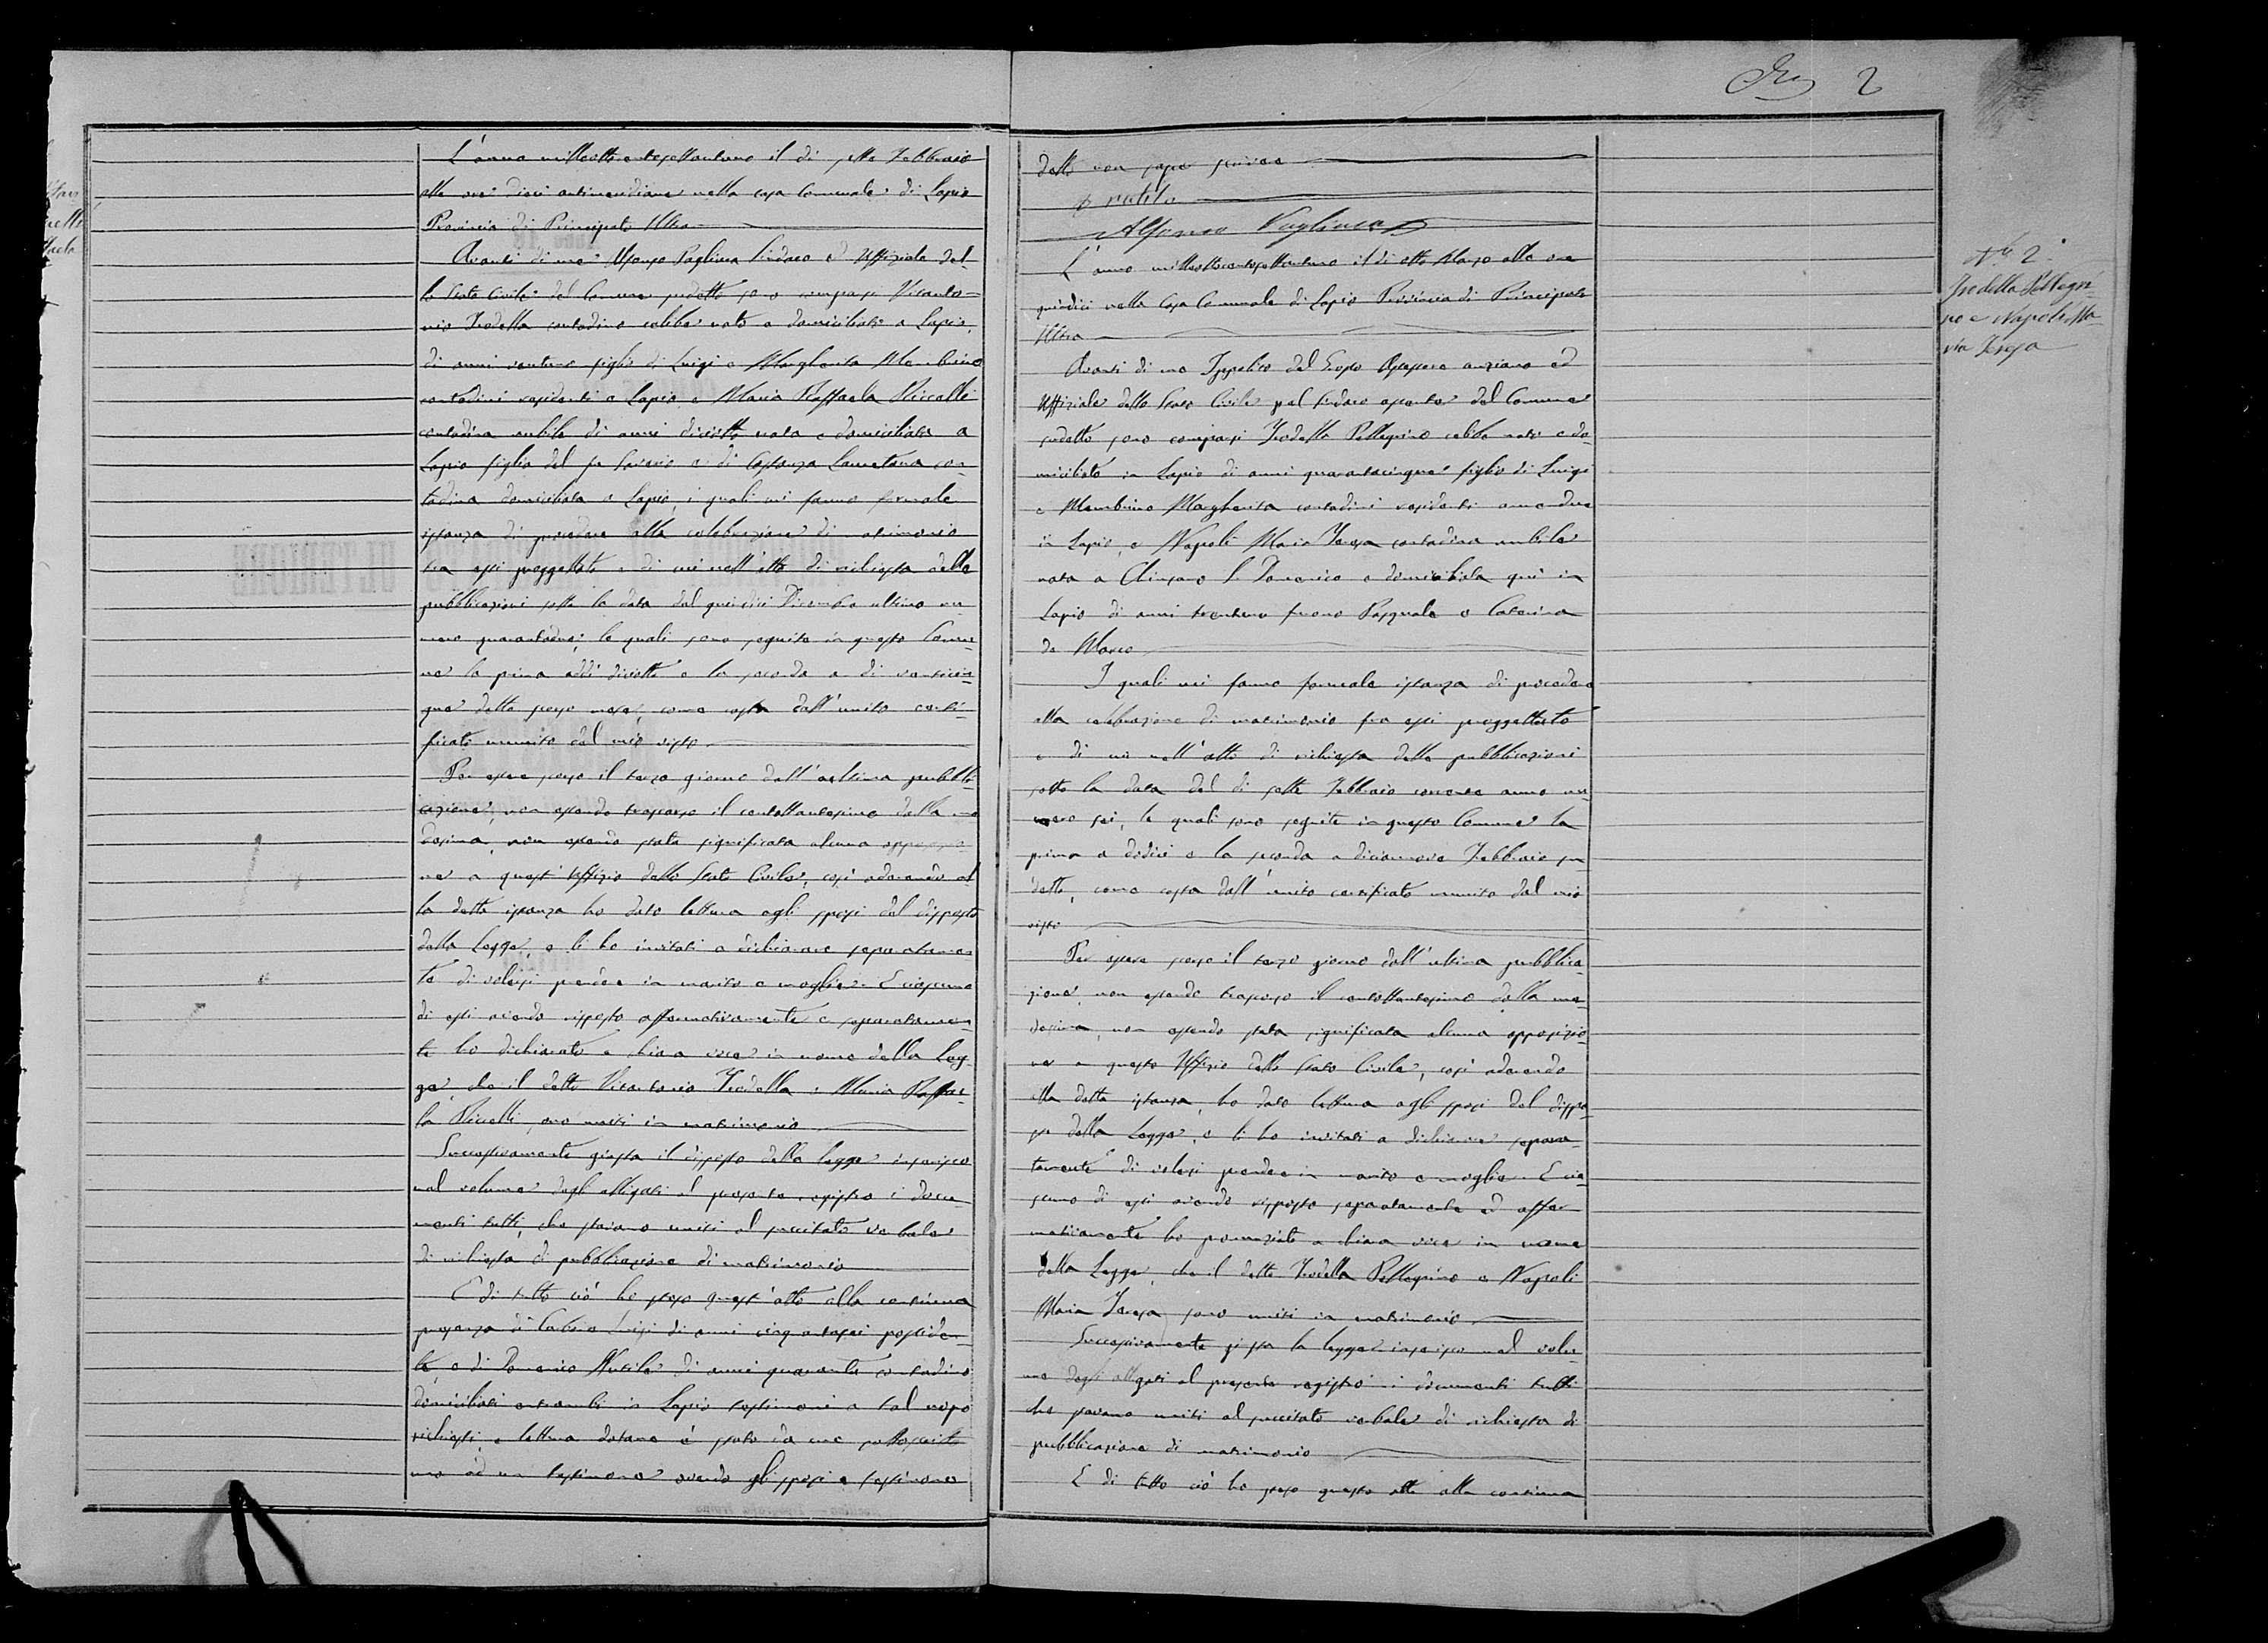 L'anno milleottocentosettantuno il di sette Febbraio
alle ore dieci antimeridiane nella casa Comunale di Lapio
Provincia di Principato Ultra
Avanti di me Alfonso Pagliuca Sindaco ed Uffiziale del
lo Stato Civile del Comune sudetto sono comparsi Vitanto-
nio Trodella contadino celibe nato e domiciliato a Lapio,
di anni ventuno figlio di Luigi e Margherita Membrino
contadini residenti a Lapio e Maria Raffaela Riccelli
contadina nubile di anni diciotto nata e domiciliata a
Lapio figlia del fu Saverio e di Costanza Lauretana con-
tadina domiciliata a Lapio, i quali mi fanno formale
istanza di procedere alla celebrazione di matrimonio
tra essi proggettato e di cui nell'atto di richiesta delle
pubblicazioni sotto la data del quindici Dicembre ultimo nu-
mero quarantadue; le quali sono seguite in questo Comu-
ne la prima addì diciotto e la seconda a dì venticin-
que detto scorso mese, come costa dall'unito certi-
ficato munito del mio visto
Per essere scorso il terzo giorno dall'ultima pubbli-
cazione, non essendo trascorso il centottantesimo dalla me-
desima, non essendo stata significata alcuna opposizio-
ne a quest'Uffizio dello Stato Civile, così aderendo al
la detta istanza ho dato lettura agli sposi del disposto
della Legge, e li ho invitati a dichiarare separatamen-
te di volersi prendere in marito e moglie. E ciascuno
di essi avendo risposto affermativamente e separatamen-
te ho dichiarato a chiara voce in nome della Leg-
ge, che il detto Vitantonio Trodella e Maria Raffae-
la Riccelli, sono uniti in matrimonio
Successivamente giusta il disposto della legge inserisco
nel volume degli alligati al presente registro i docu-
menti tutti, che stavano uniti al succitato verbale
di richiesta di pubblicazione di matrimonio
E di tutto ciò ho steso quest'atto alla continua
presenza di Luigi di anni cinquantasei possiden-
te, e di Domenico di anni quaranta contadino
domiciliati entrambi in Lapio testimoni a tal uopo
richiesti, e lettura datane è stato da me sottoscritto
uno ed un testimone avendo gli sposi e testimone
detto non saper scrivere
Alfonso Pagliuca
L'anno milleottocentosettantuno il di otto Marzo alle ore
quindici nella Casa Comunale di Lapio Provincia di Principato
Ultra
Avanti di me Ippolito del Grosso Assessore anziano ed
Uffiziale dello Stato Civile pel Sindaco assente del Comune
sudetto sono comparsi Trodella Pellegrino celibe nato e do-
miciliato in Lapio di anni quarantacinque figlio di Luigi
e Membrino Margherita contadini residenti amendue
in Lapio, e Napoli Maria Teresa contadina nubile
nata a Chiusano S. Domenico e domiciliata quì in
Lapio di anni trentuno furono Pasquale e Caterina
de Marco
I quali mi fanno formale istanza di procedere
alla celebrazione di matrimonio fra essi proggettato
e di cui nell'atto di richiesta delle pubblicazioni
sotto la data del dì sette Febbraio corrente anno nu-
mero sei, le quali sono seguite in questo Comune la
prima a dodici e la seconda a diciannove Febbraio su-
detto, come costa dall'unito certificato munito del mio
visto
Per essere scorso il terzo giorno dall'ultima pubblica-
zione, non essendo trascorso il centottantesimo dalla me-
desima, non essendo stata significata alcuna opposizio-
ne a questo Uffizio dello Stato Civile, così aderendo
alla detta istanza, ho dato lettura agli sposi del dispo-
sto della Legge, e li ho invitati a dichiarare separa-
tamente di volersi prendere in marito e moglie. E cia-
scuno di essi avendo risposto separatamente ed affer-
mativamente ho pronunziato a chiara voce in nome
della Legge, che il detto Trodella Pellegrino e Napoli
Maria Teresa sono uniti in matrimonio
Successivamente giusta la legge inserisco nel volu-
me degli alligati al presente registro i documenti tutti
che stavano uniti al succitato verbale di richiesta di
pubblicazione di matrimonio
E di tutto ciò ho steso questo atto alla continua
2
N.° 2.
Trodella Pellegri-
no e Napoli Ma-
ria Teresa